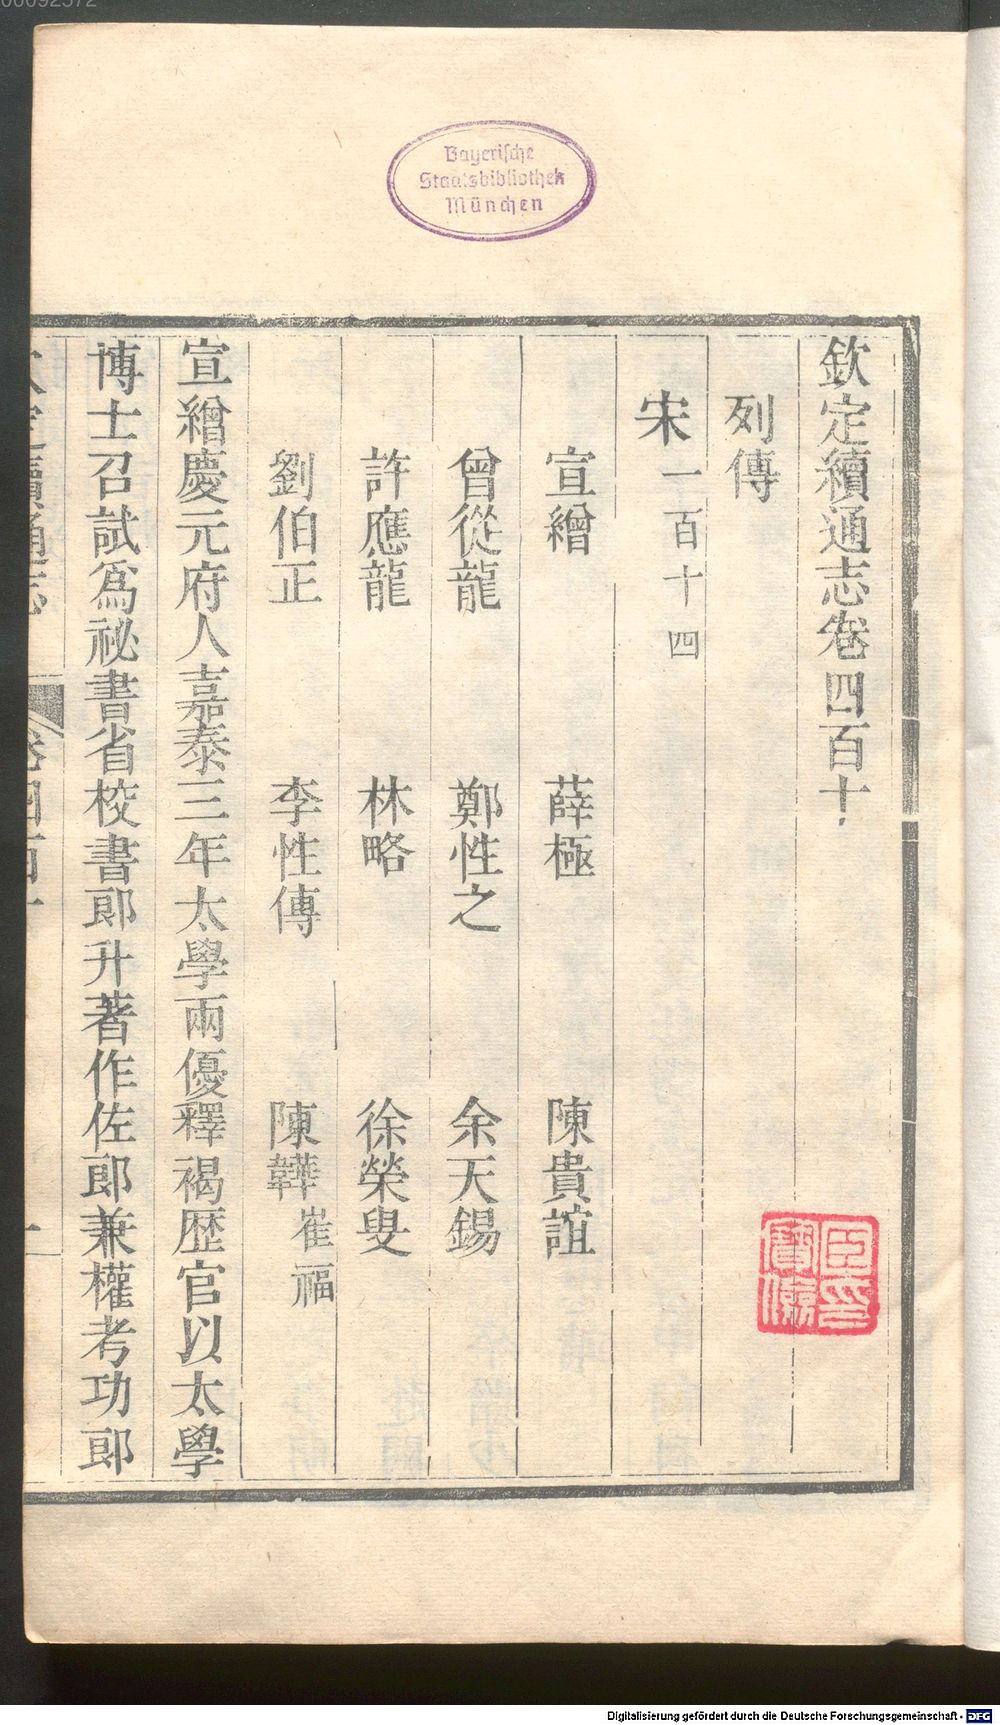 00092572
Bayerische
Staatsbibliothek
München
欽定續通志卷四百十
列傳
宋一百十四
宣繒 薛極 陳貴誼
曾從龍 鄭性之 余天錫
許應龍 林略 徐榮叟
劉伯正 李性傳 陳韡 崔福
宣繒慶元府人嘉泰三年太學兩優釋褐歷官以太學
博士召試爲祕書省校書郎升著作佐郎兼權考功郎
欽定續通志 卷四百十 一
Digitalisierung gefördert durch die Deutsche Forschungsgemeinschaft - DFG